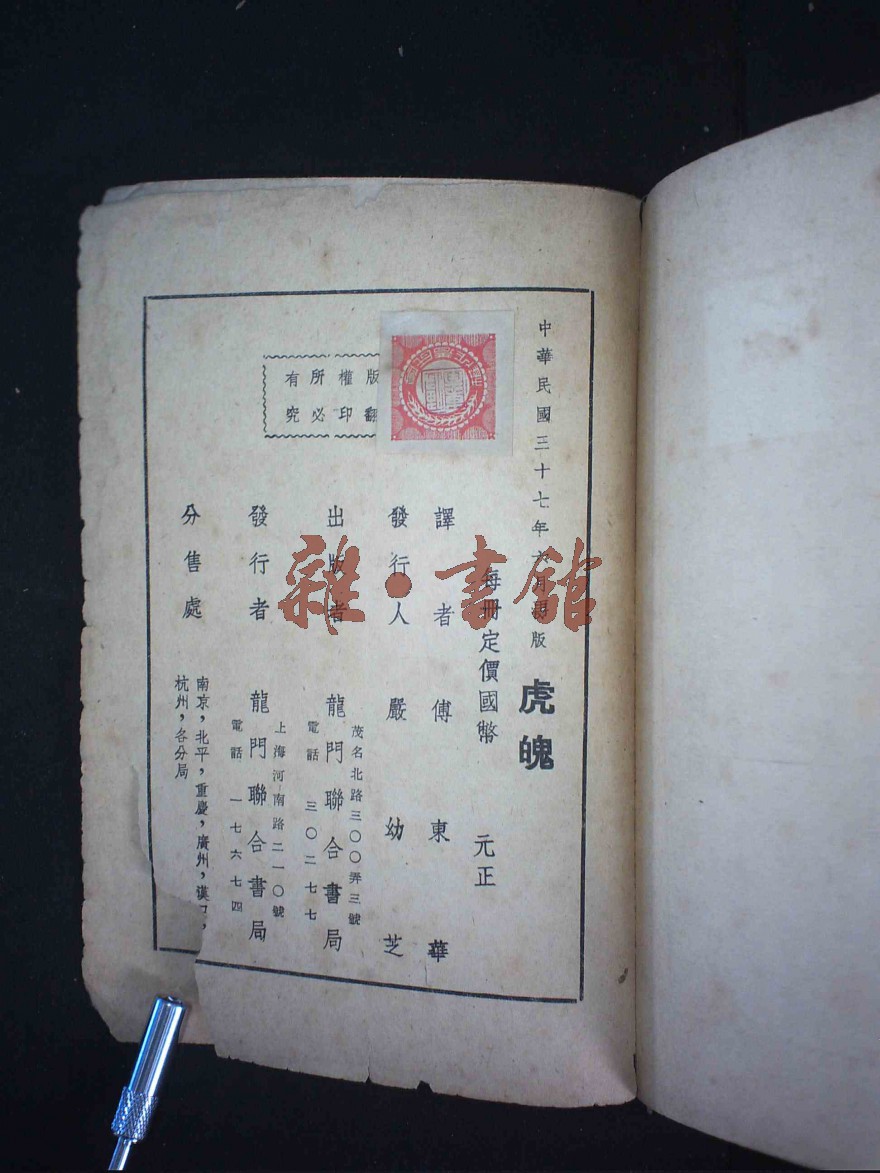 中華民國三十七年六月初版
虎魄
每冊定價國幣 元正
譯者 傅東華
發行人 嚴幼芝
出版者 龍門聯合書局
茂名北路三〇〇弄三號
電話 三〇二七七
發行者 龍門聯合書局
上海河南路二一〇號
電話 一七六七四
分售處
南京，北平，重慶，廣州，漢口，
杭州，各分局
版權所有
翻印必究
雜·書館